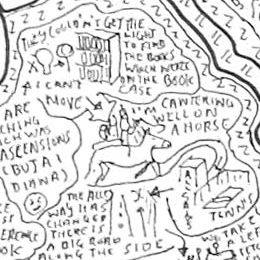 THEY COULDN'T GET THE
LIGHT
TO FIND
THE BOOKS
WHICH WERE
ON THE BOOK
CASE
I CAN'T
MOVE
I'M CANTERING
WELL ON
A HORSE
ARE
CHING
WAS
ASCENSIONS
(BUJAI
DIANA)
THE ALLY
WAY HAS
CHANGED
THERE IS
A BIG ROAD
ALONG THE SIDE
STAIRS
TENNIS
WE TAKE
A LEF
ERENCE
OK